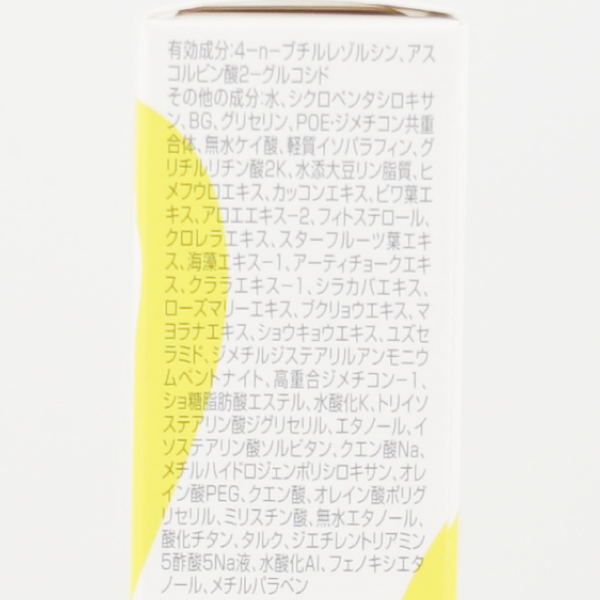 有効成分:4-n-ブチルレゾルシン、アス
コルビン酸2-グルコシド
その他の成分:水、シクロペンタシロキサ
ン、BG、グリセリン、POE・ジメチコン共重
合体、無水ケイ酸、軽質イソパラフィン、グ
リチルリチン酸2K、水添大豆リン脂質、ヒ
メフウロエキス、カッコンエキス、ビワ葉エ
キス、アロエエキス-2、フィトステロール、
クロレラエキス、スターフルーツ葉エキ
ス、海藻エキス-1、アーティチョークエキ
ス、クララエキス-1、シラカバエキス、
ローズマリーエキス、ブクリョウエキス、マ
ヨラナエキス、ショウキョウエキス、ユズセ
ラミド、ジメチルジステアリルアンモニウ
ムベントナイト、高重合ジメチコン-1、
ショ糖脂肪酸エステル、水酸化K、トリイソ
ステアリン酸ジグリセリル、エタノール、イ
ソステアリン酸ソルビタン、クエン酸Na、
メチルハイドロジェンポリシロキサン、オレ
イン酸PEG、クエン酸、オレイン酸ポリグ
リセリル、ミリスチン酸、無水エタノール、
酸化チタン、タルク、ジエチレントリアミン
5酢酸5Na液、水酸化Al、フェノキシエタ
ノール、メチルパラベン